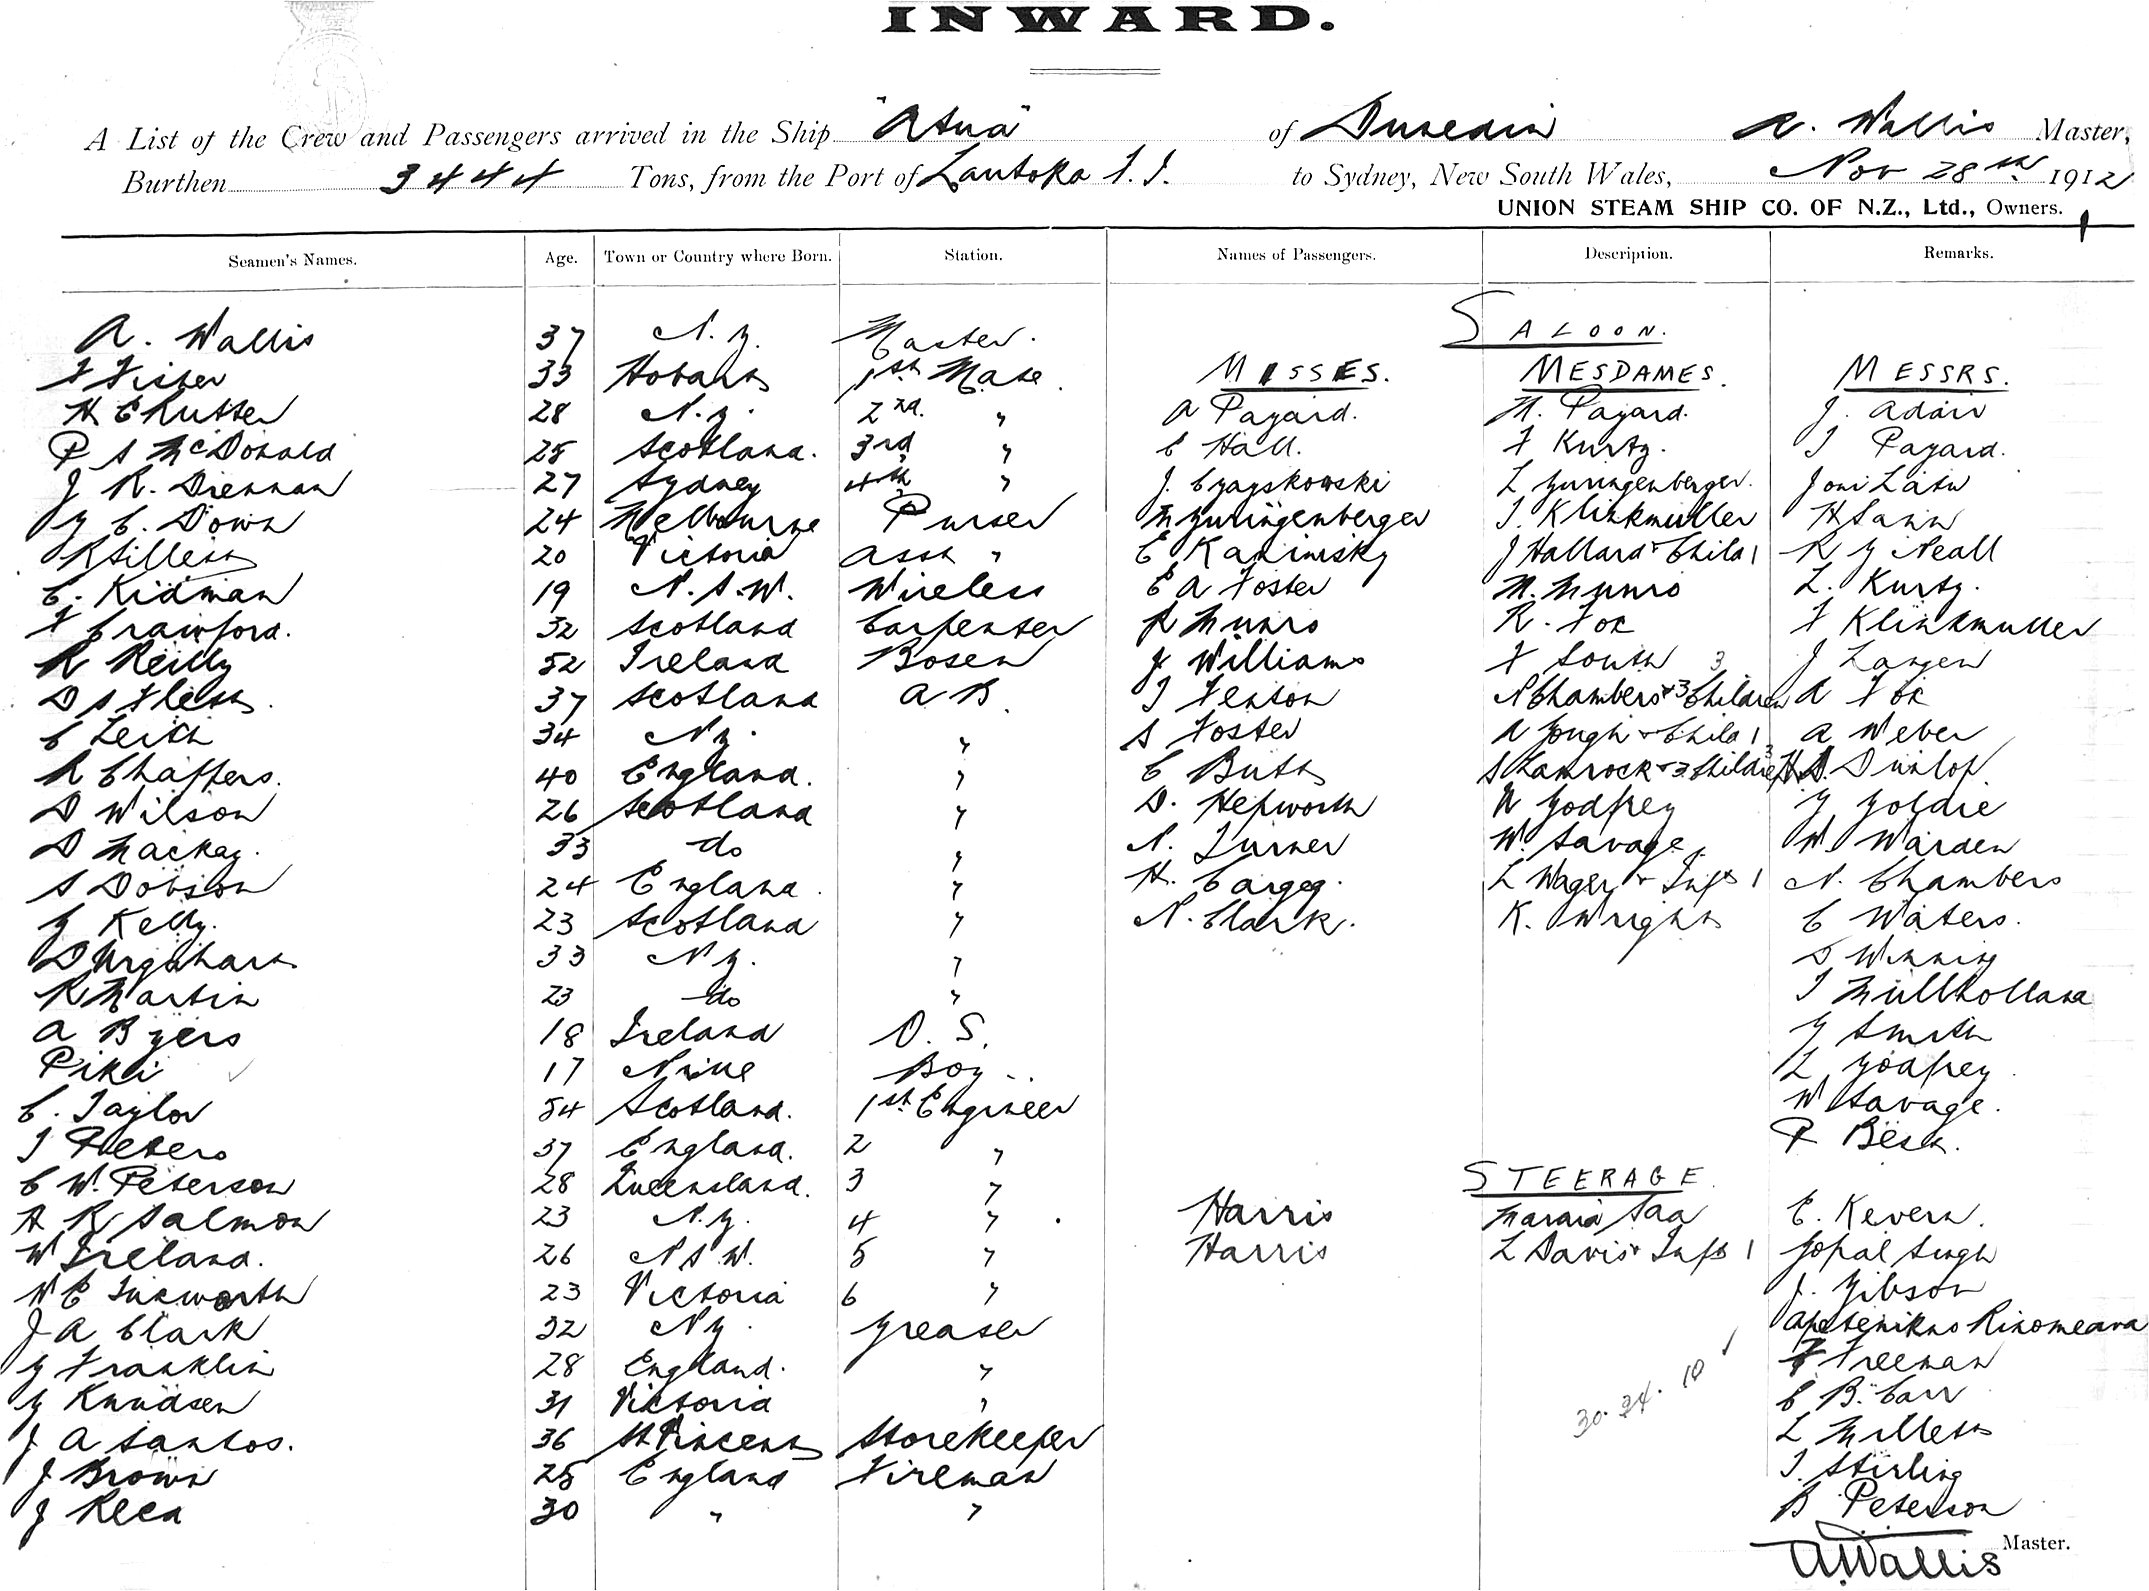 INWARD.
A List of the Crew and Passengers arrived in the Ship "Atua" of Dunedin A. Wallis Master,
Burthen 3444 Tons, from the Port of Lautoka F.I. to Sydney, New South Wales, Nov 28th 1912
UNION STEAM SHIP CO. OF N.Z., Ltd., Owners.
Seamen's Names. Age. Town or Country where Born. Station. Names of Passengers. Description. Remarks.
SALOON.
A. Wallis 37 N.Z. Master.
MISSES. MESDAMES. MESSRS.
F Fisher 33 Hobart 1st Mate.
H E Rutter 28 N.Z. 2nd. " A Pagard. M. Pagard. J. Adair
P S McDonald 25 Scotland. 3rd " C Hall. F Kurtz. J Pagard.
J R. Drennan 27 Sydney 4th " J. L Zuringenberger. Joni Latu
G C. Down 24 Melbourne Purser M Zuringenberger J. Klinkmuller H Sann
R Sillett 20 Victoria Asst " E Kaminsky J Hallard & Child 1 R G Neall
C. Kidman 19 N.S.W. Wireless E A Foster M. Munro L. Kurtz.
F Crawford. 32 Scotland Carpenter R Munro R. Fox F Klinkmuller
R Reilly 52 Ireland Bosen J. Williams F South 3 J Langen
D S Flett. 37 Scotland A B. J Fenton N Chambers & 3 Children A Fox
C Leith 34 N.Z. " S Foster A Gough & Child 1 A Weber
R Chaffers. 40 England. " C Butt S Shamrock & 3 Children 3 H D. Dunlop.
D Wilson 26 Scotland " D. Hepworth N Godfrey G Goldie
D Mackay. 33 do " N. Turner W. Savage. W. Warden
S Dobson 24 England. " H. L Wager & Inft 1 N. Chambers
G Kelly. 23 Scotland " N. Clark. K. Wright C Waters.
D Urquhart 33 N.Z. " S Winning
R Martin 23 do " J Mullholland
A Byers 18 Ireland O. S. G Smith
Piki 17 Niue Boy.. L Godfrey.
C. Taylor 54 Scotland. 1st Engineer W Savage.
J Peters 37 England. 2 " P Best.
STEERAGE.
C W. Peterson 28 Queensland. 3 "
A R Salmon 23 N.Z. 4 " Harris Maraia Saa E. Kevern.
W Ireland. 26 N S W. 5 " Harris L Davis & Inft 1 Gopal Singh
W E Tuxworth 23 Victoria 6 " J. Gibson
J A Clark 32 N Z. Greaser Rinomeara
G Franklin 28 England. " F Freeman
G Knudsen 31 Victoria " 30. 34. 10 C B. Carr
J A Santos. 36 St Vincent Storekeeper L Millett
J Brown 25 England Fireman J. Stirling
J Reed 30 " " B Peterson
A. Wallis Master.